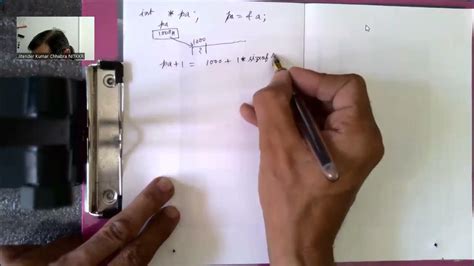 Jitender Kumar Chhabra NITKKR
int * pa; pa = & a;
pa
1000
1000
pa+1 = 1000 + 1* sizeof